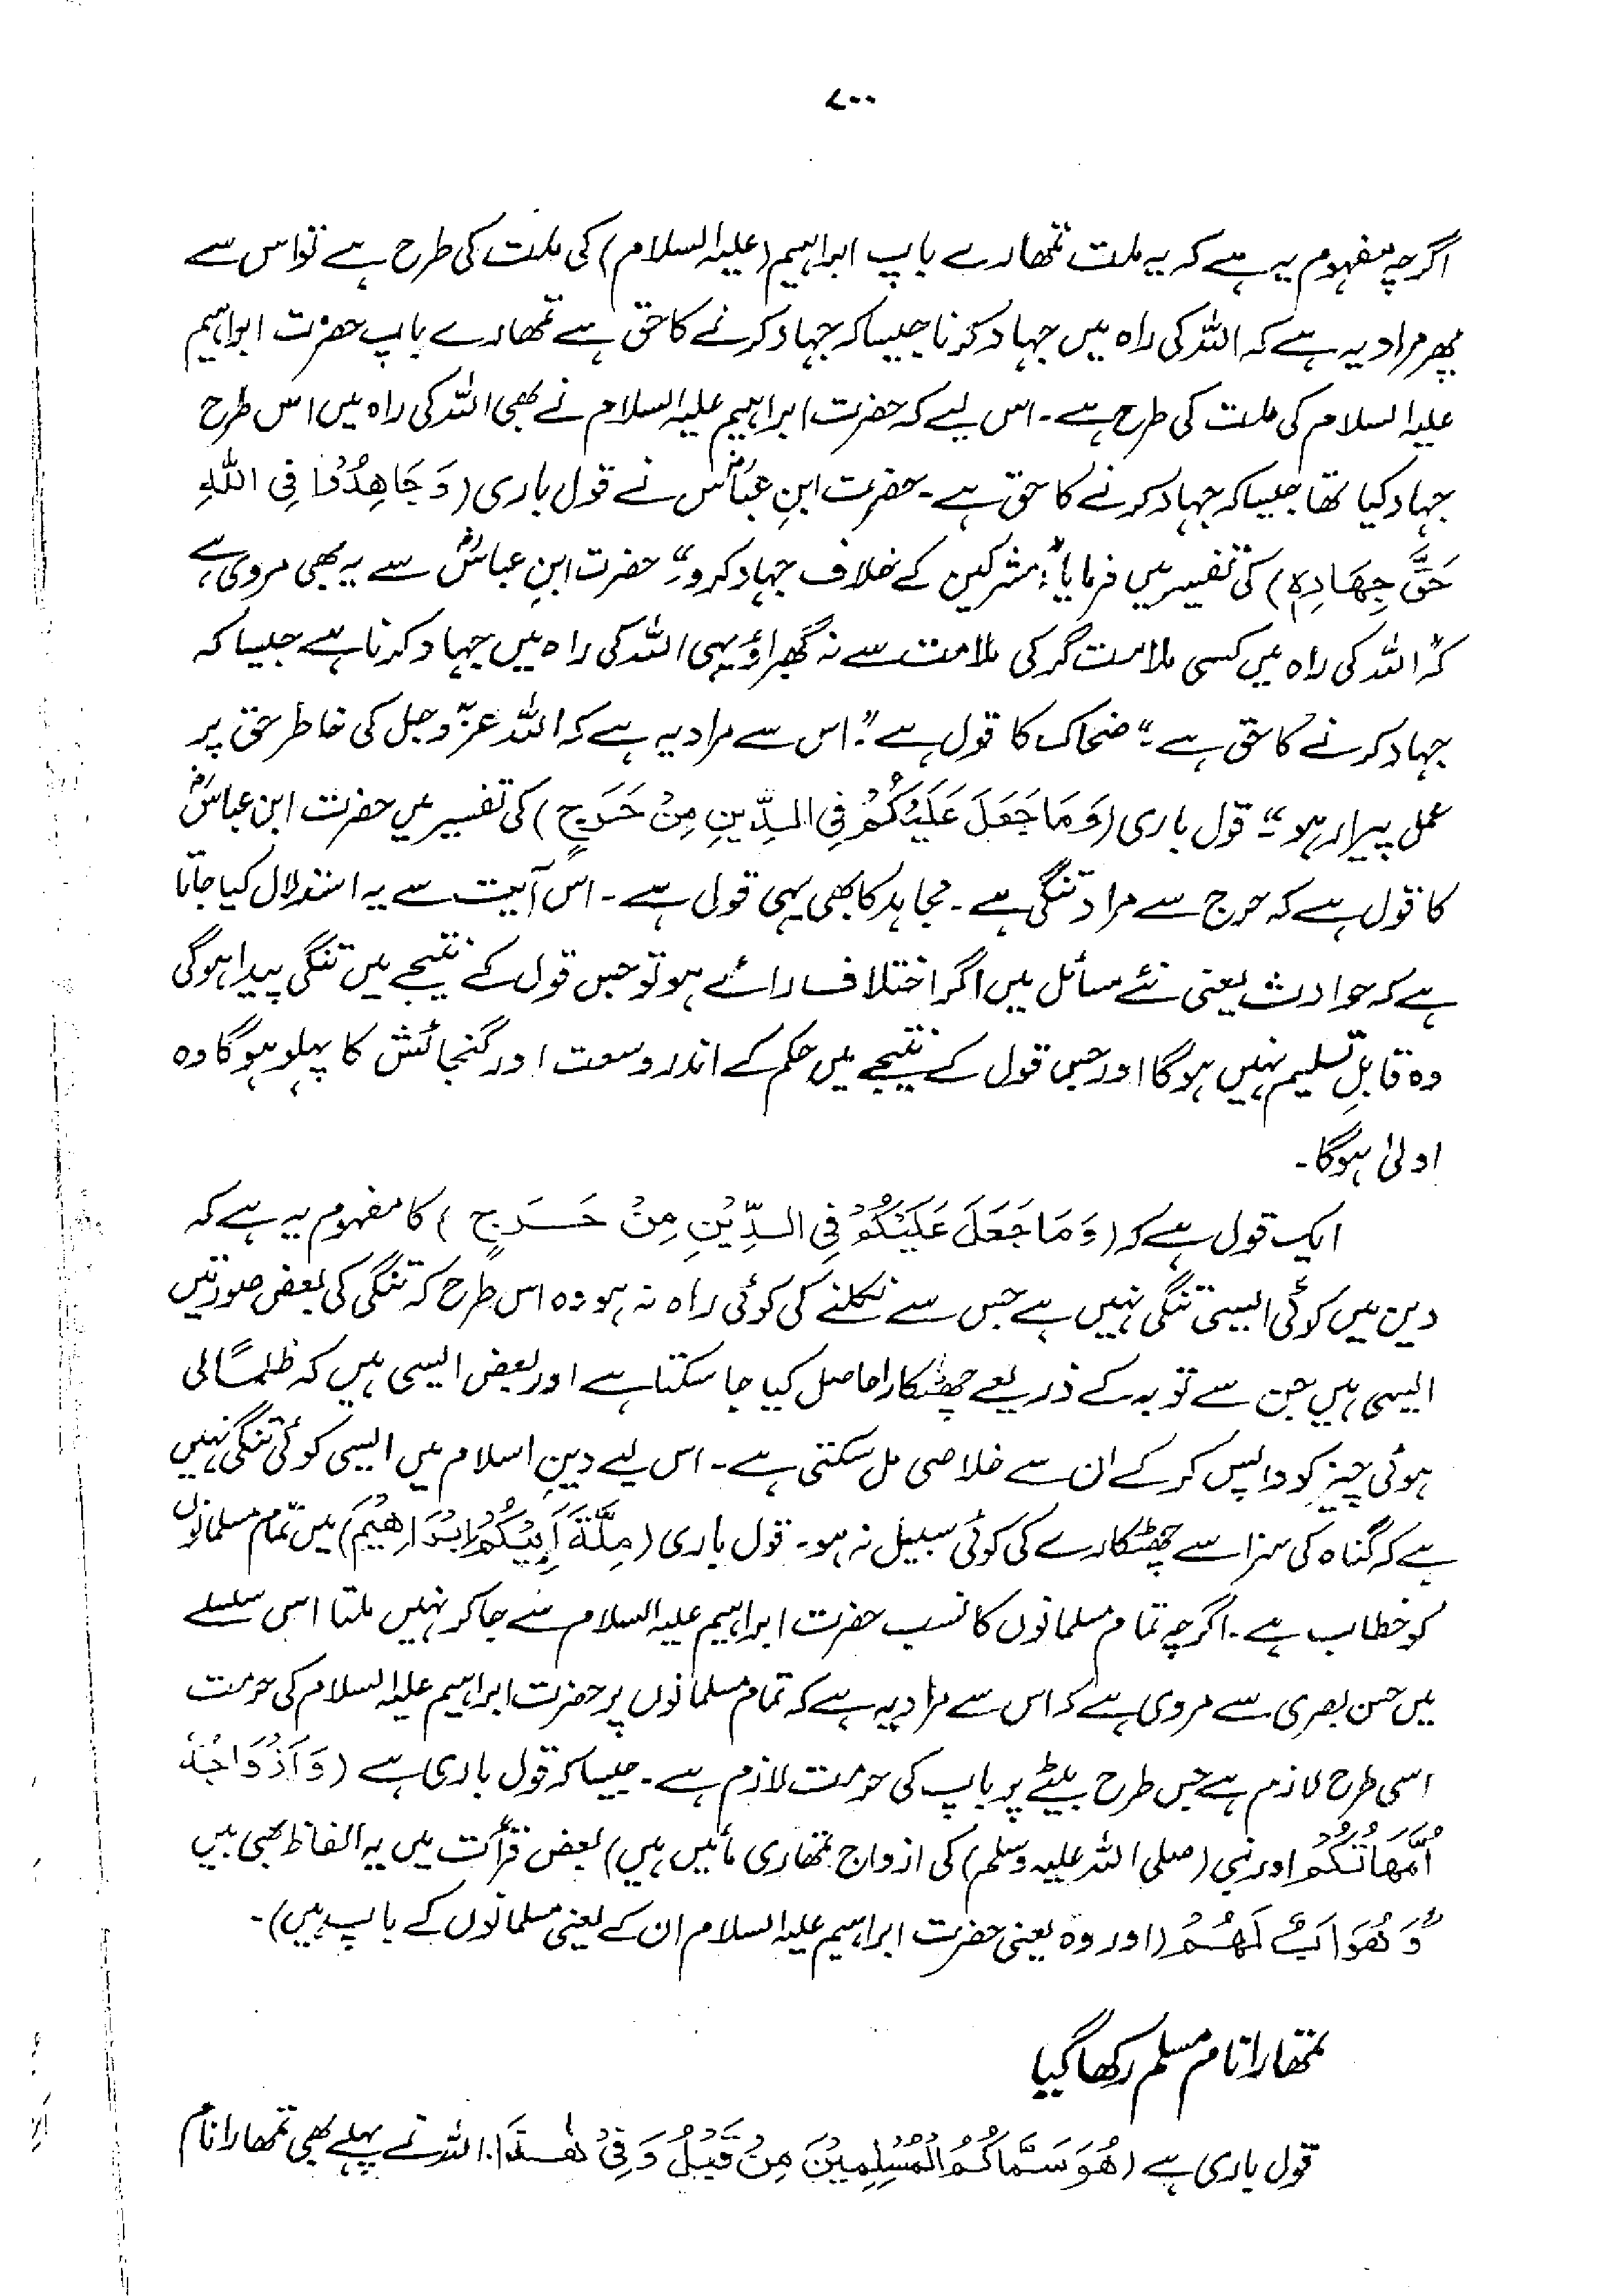 ۷۰۰
اگرچہ مفہوم یہ ہے کہ یہ ملت تمھارے باپ ابراہیم (علیہ السلام) کی ملت کی طرح ہے تو اس سے
پھر مراد یہ ہے کہ اللہ کی راہ میں جہاد کرنا جیسا کہ جہاد کرنے کا حق ہے تمھارے باپ حضرت ابراہیم
علیہ السلام کی ملت کی طرح ہے۔ اس لیے کہ حضرت ابراہیم علیہ السلام نے بھی اللہ کی راہ میں اس طرح
جہاد کیا تھا جیسا کہ جہاد کرنے کا حق ہے۔ حضرت ابنِ عباسؓ نے قول باری (وَجَاهِدُوْا فِی اللّٰهِ
حَقَّ جِهَادِہٖ) کی تفسیر میں فرمایا: "مشرکین کے خلاف جہاد کرو۔" حضرت ابنِ عباسؓ سے یہ بھی مروی ہے
کہ "اللہ کی راہ میں کسی ملامت گر کی ملامت سے نہ گھبراؤ یہی اللہ کی راہ میں جہاد کرنا ہے جیسا کہ
جہاد کرنے کا حق ہے۔" ضحاک کا قول ہے "اس سے مراد یہ ہے کہ اللہ عزّوجل کی خاطر حق پر
عمل پیرا رہو۔" قول باری (وَمَا جَعَلَ عَلَیْکُمْ فِی الدِّیْنِ مِنْ حَرَجٍ) کی تفسیر میں حضرت ابن عباسؓ
کا قول ہے کہ حرج سے مراد تنگی ہے۔ مجاہد کا بھی یہی قول ہے۔ اس آیت سے یہ استدلال کیا جاتا
ہے کہ حوادث یعنی نئے مسائل میں اگر اختلاف رائے ہو تو جس قول کے نتیجے میں تنگی پیدا ہوگی
وہ قابلِ تسلیم نہیں ہوگا اور جس قول کے نتیجے میں حکم کے اندر وسعت اور گنجائش کا پہلو ہوگا وہ
اولیٰ ہوگا۔
ایک قول ہے کہ (وَمَا جَعَلَ عَلَیْکُمْ فِی الدِّیْنِ مِنْ حَرَجٍ) کا مفہوم یہ ہے کہ
دین میں کوئی ایسی تنگی نہیں ہے جس سے نکلنے کی کوئی راہ نہ ہو وہ اس طرح کہ تنگی کی بعض صورتیں
ایسی ہیں جن سے توبہ کے ذریعے چھٹکارا حاصل کیا جا سکتا ہے اور بعض ایسی ہیں کہ ظلمًا لی
ہوئی چیز کو واپس کر کے ان سے خلاصی مل سکتی ہے۔ اس لیے دینِ اسلام میں ایسی کوئی تنگی نہیں
ہے کہ گناہ کی سزا سے چھٹکارے کی کوئی سبیل نہ ہو۔ قول باری (مِلَّةَ اَبِیْکُمْ اِبْرَاهِیْمَ) میں تمام مسلمانوں
کو خطاب ہے۔ اگرچہ تمام مسلمانوں کا نسب حضرت ابراہیم علیہ السلام سے جا کر نہیں ملتا اس سلسلے
میں حسن بصری سے مروی ہے کہ اس سے مراد یہ ہے کہ تمام مسلمانوں پر حضرت ابراہیم علیہ السلام کی حرمت
اسی طرح لازم ہے جس طرح بیٹے پر باپ کی حرمت لازم ہے۔ جیسا کہ قول باری ہے (وَاَزْوَاجُهٗ
اُمَّهَاتُکُمْ اور نبی (صلی اللہ علیہ وسلم) کی ازواج تمھاری مائیں ہیں) بعض قرأت میں یہ الفاظ بھی ہیں
"وَهُوَ اَبٌ لَهُمْ (اور وہ یعنی حضرت ابراہیم علیہ السلام ان کے یعنی مسلمانوں کے باپ ہیں)۔
تمھارا نام مسلم رکھا گیا
قول باری ہے (هُوَ سَمَّاکُمُ الْمُسْلِمِیْنَ مِنْ قَبْلُ وَفِیْ هٰذَا۔ اللہ نے پہلے بھی تمھارا نام